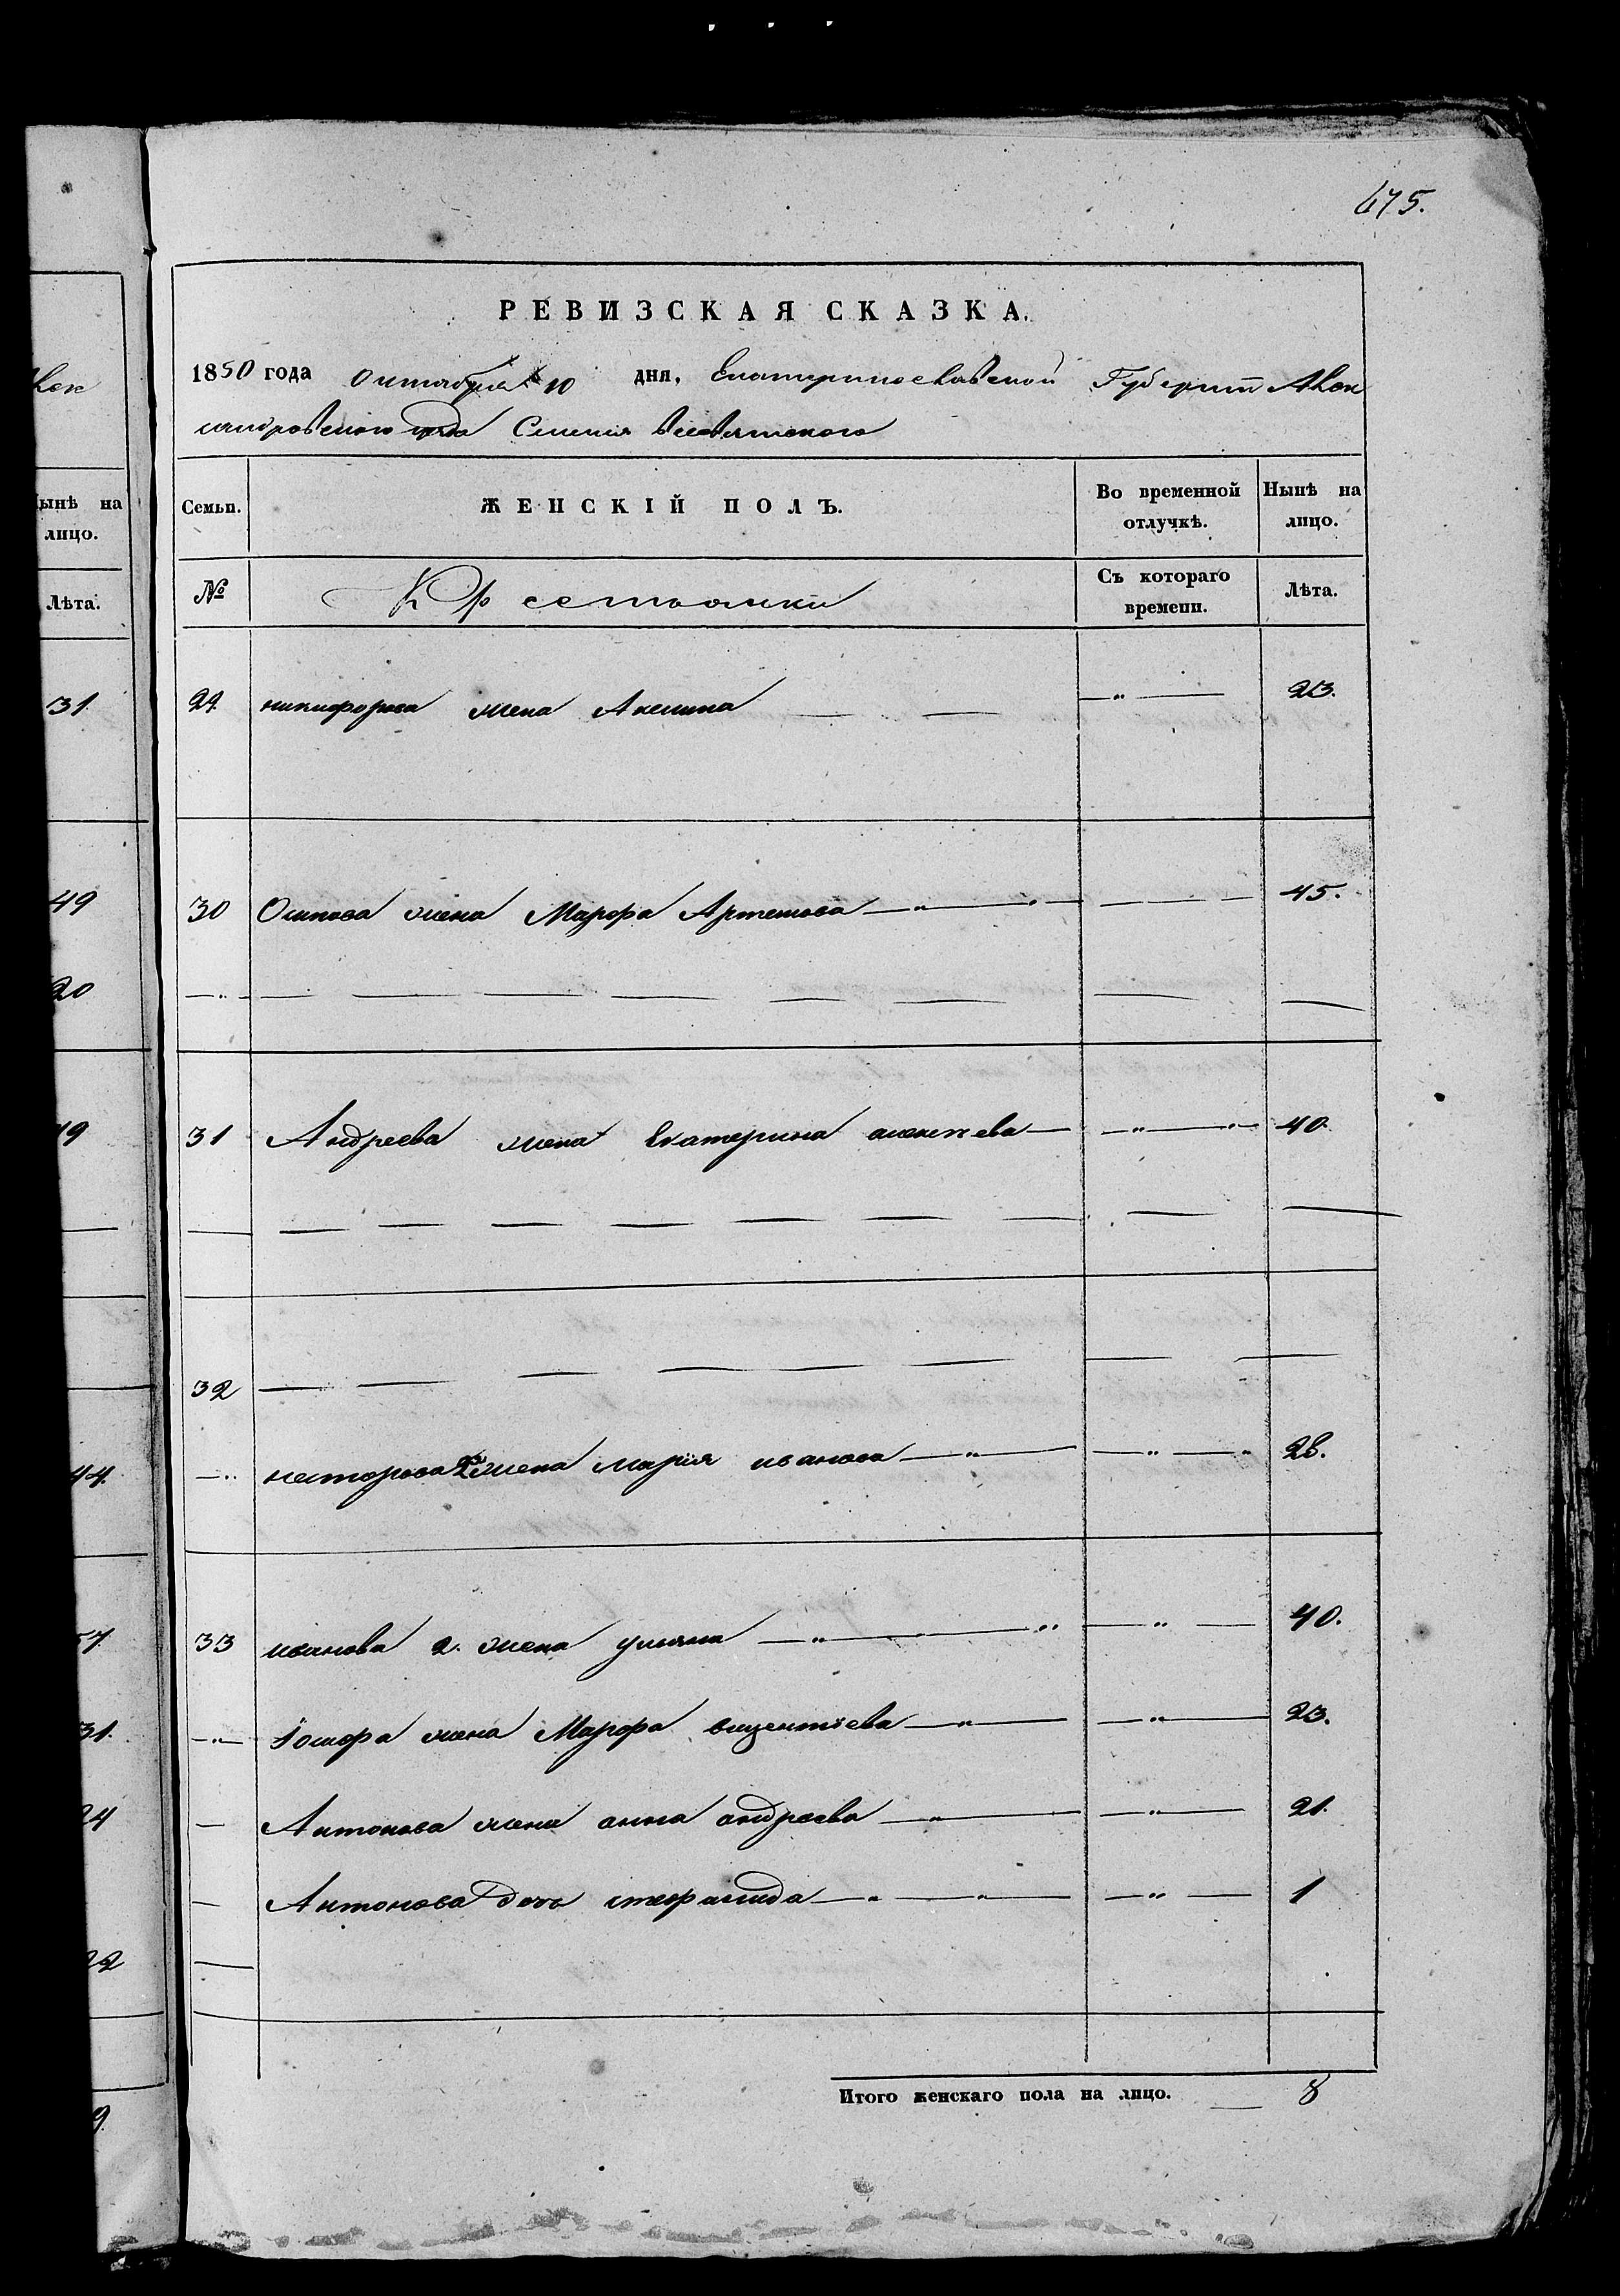 675.
РЕВИЗСКАЯ СКАЗКА.
1850 года Октября 10 дня, Екатеринославской Губернии Алек
сандровского уезда Селения
Семьи. ЖЕНСКІЙ ПОЛЪ. Во временной отлучкѣ. Нынѣ на лицо.
№ Крестьянки Съ котораго времени. Лѣта.
29 никифорова жена Акелина — — —„— 23.
30 Осипова жена Марфа Артемова —„— — — — 45.
—„— — — — — — — — — —
31 Андреева жена Екатерина алексеева — —„—„— 40.
— — — — — — — — — —
32 — — — — — — — —
—„ нестерова 2я жена марія иванова —„— —„—„ 28.
33 иванова 2. жена уляна —„—„ —„— 40.
—„— жена Марфа викентіева —„— —„— 23.
— Антонова жена анна андреева —„— —„— 21.
— Антонова дочь —„—„— —„— 1
—
Итого женскаго пола на лицо. — 8
лек
Нынѣ на
лицо.
Лѣта.
31
49
20
19
44.
57
31.
24
22
9.